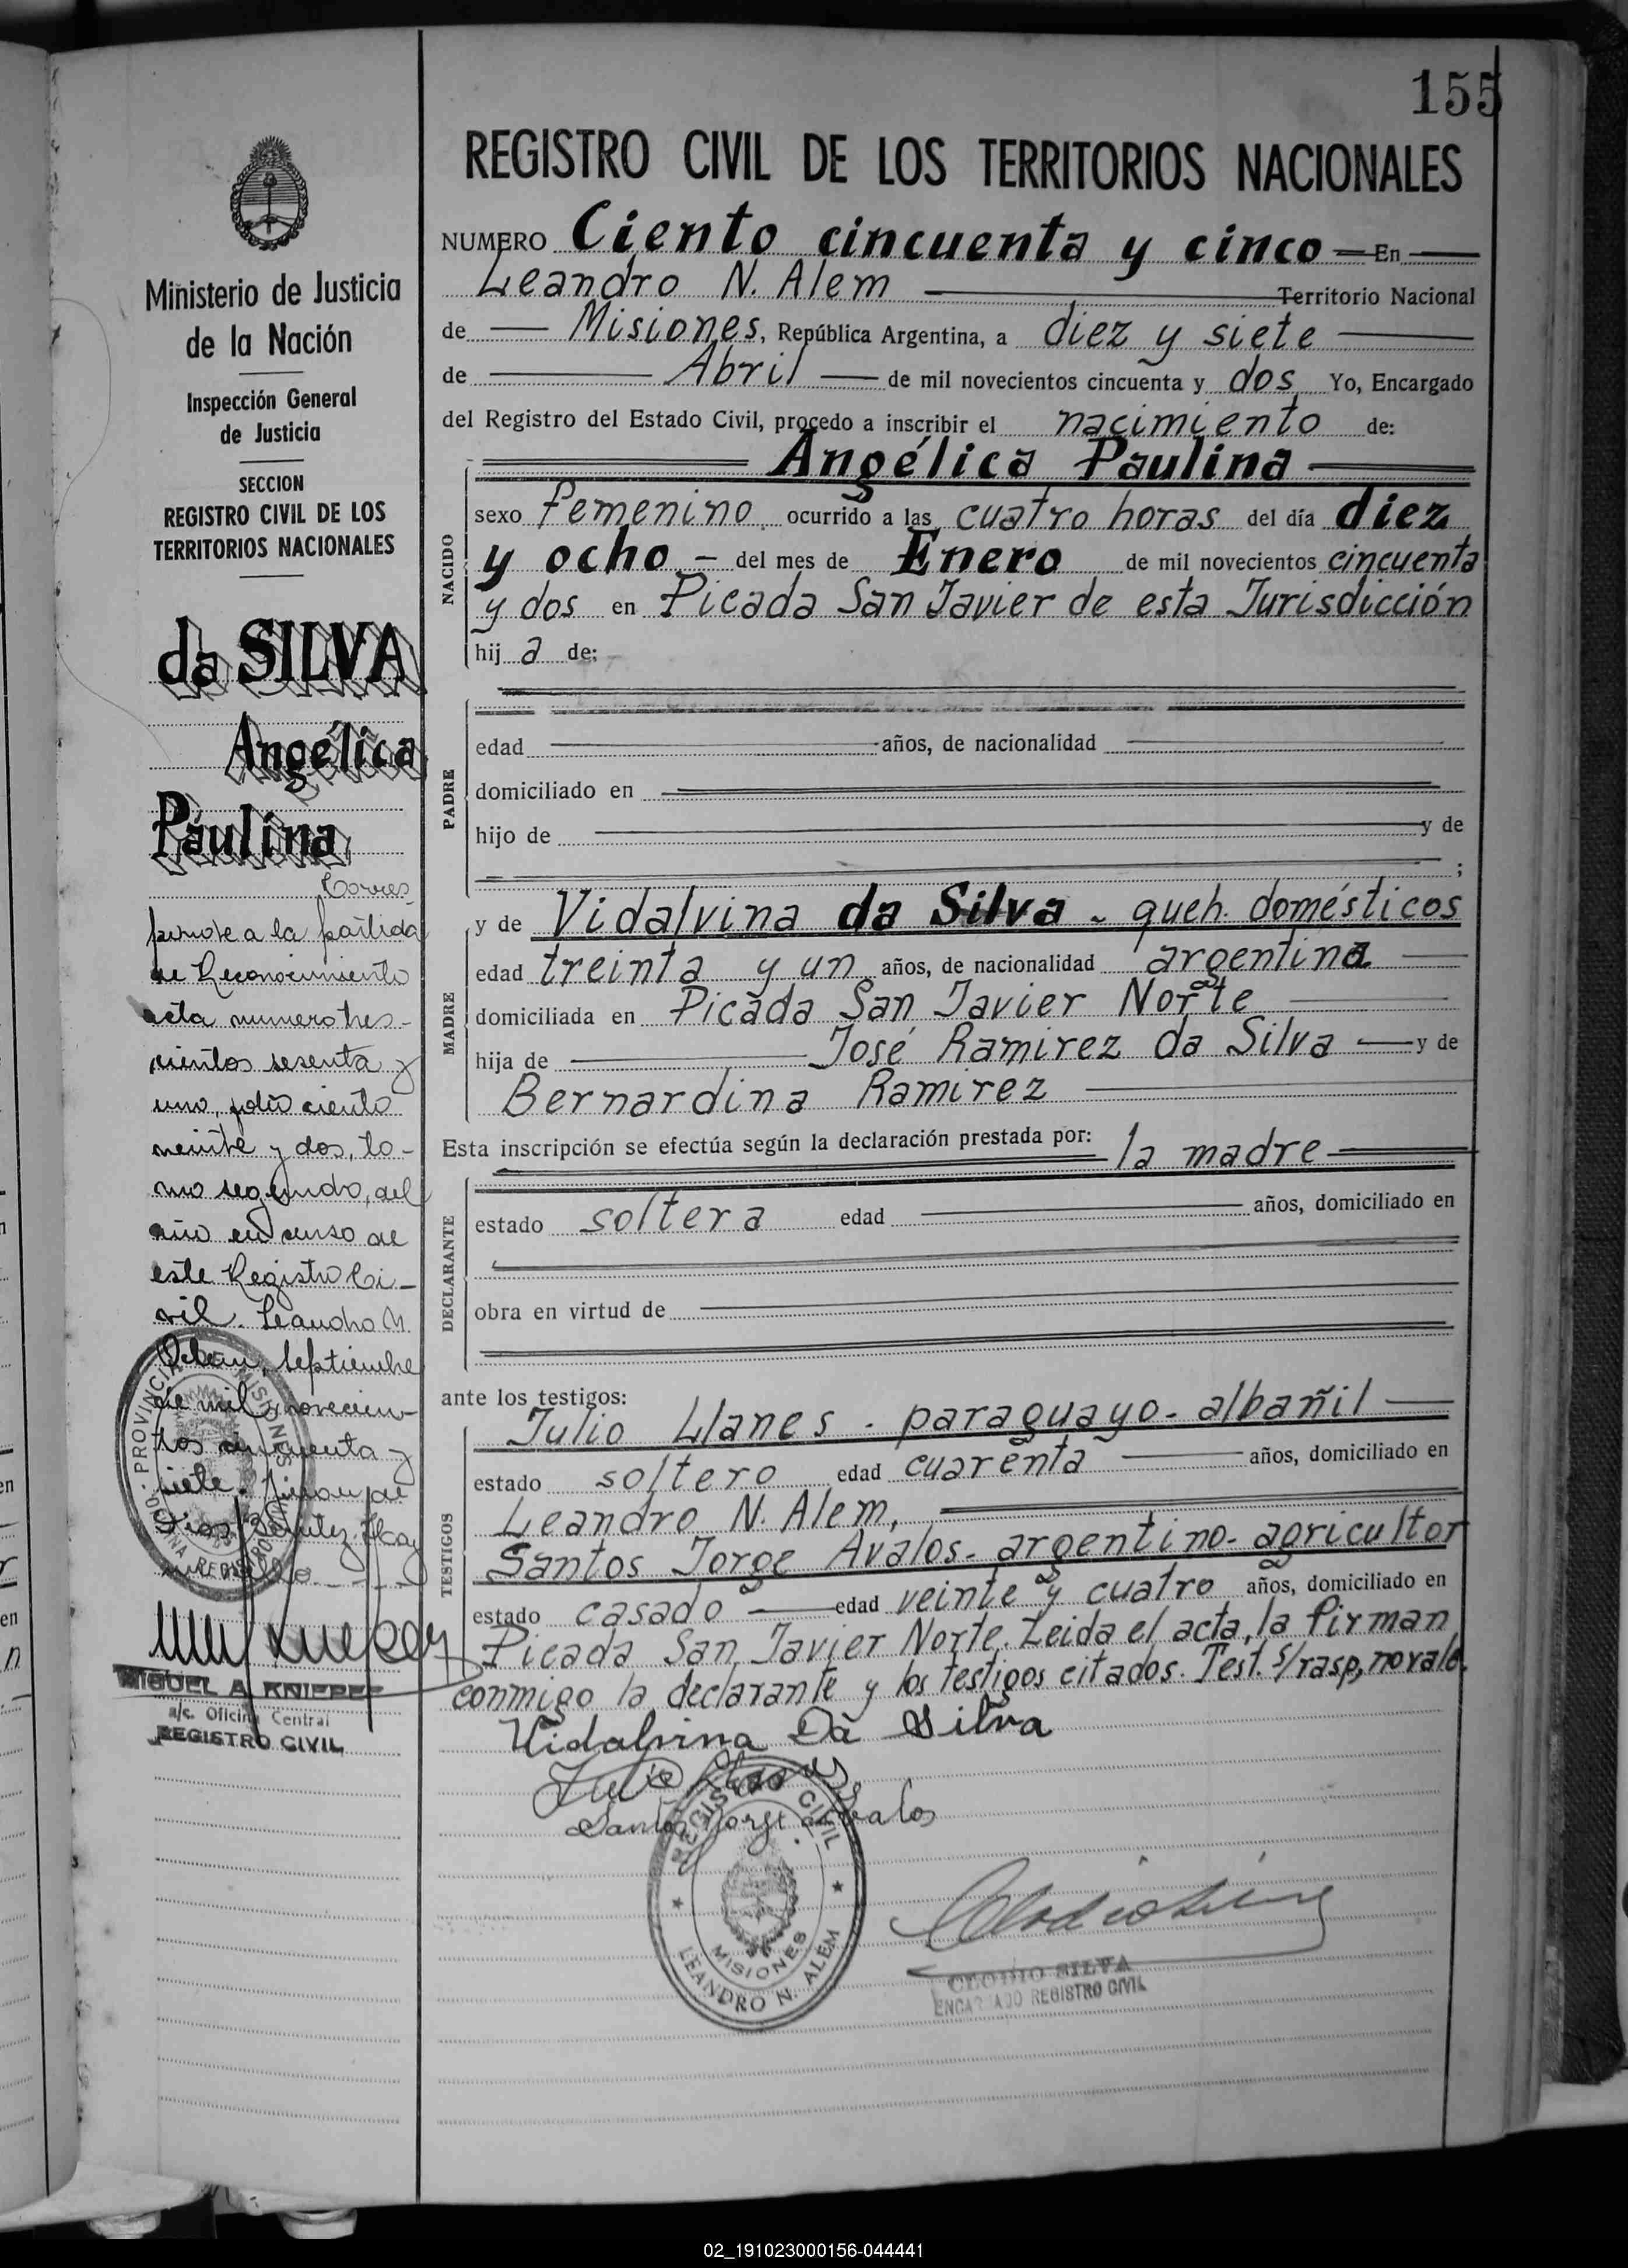 155
REGISTRO CIVIL DE LOS TERRITORIOS NACIONALES
NUMERO Ciento cincuenta y cinco En
Leandro N. Alem Territorio Nacional
de Misiones, República Argentina, a diez y siete
de Abril de mil novecientos cincuenta y dos Yo, Encargado
del Registro del Estado Civil, procedo a inscribir el nacimiento de:
Angélica Paulina
NACIDO
sexo femenino ocurrido a las cuatro horas del día diez
y ocho.- del mes de Enero de mil novecientos cincuenta
y dos en Picada San Javier de esta Jurisdicción
hija de:
PADRE
edad años, de nacionalidad
domiciliado en
hijo de y de
;
MADRE
y de Vidalvina da Silva - queh. domésticos
edad treinta y un años, de nacionalidad argentina
domiciliada en Picada San Javier Norte
hija de José Ramirez da Silva y de
Bernardina Ramirez
Esta inscripción se efectúa según la declaración prestada por: la madre
DECLARANTE
estado soltera edad años, domiciliado en
obra en virtud de
ante los testigos:
TESTIGOS
Julio Llanes - paraguayo - albañil
estado soltero edad cuarenta años, domiciliado en
Leandro N. Alem,
Santos Jorge Avalos - argentino - agricultor
estado casado edad veinte y cuatro años, domiciliado en
Picada San Javier Norte. Leida el acta, la firman
conmigo la declarante y los testigos citados. Test. s/rasp, no vale.
Vidalvina Da Silva
Julio Llanes
Santos Jorge Avalos
REGISTRO CIVIL
MISIONES
LEANDRO N. ALEM
CLODIO SILVA
ENCARGADO REGISTRO CIVIL
Ministerio de Justicia
de la Nación
Inspección General
de Justicia
SECCION
REGISTRO CIVIL DE LOS
TERRITORIOS NACIONALES
da SILVA
Angélica
Paulina
Corres
ponde a la partida
de Reconocimiento
acta numero tres-
cientos sesenta y
uno, folio ciento
veinte y dos, to-
mo segundo, del
año en curso de
este Registro Ci-
vil. Leandro N.
Alem, Septiembre
de mil novecien-
tos cincuenta y
siete.
PROVINCIA DE MISIONES
MIGUEL A. KNIEPE
a/c. Oficina Central
REGISTRO CIVIL
02_191023000156-044441